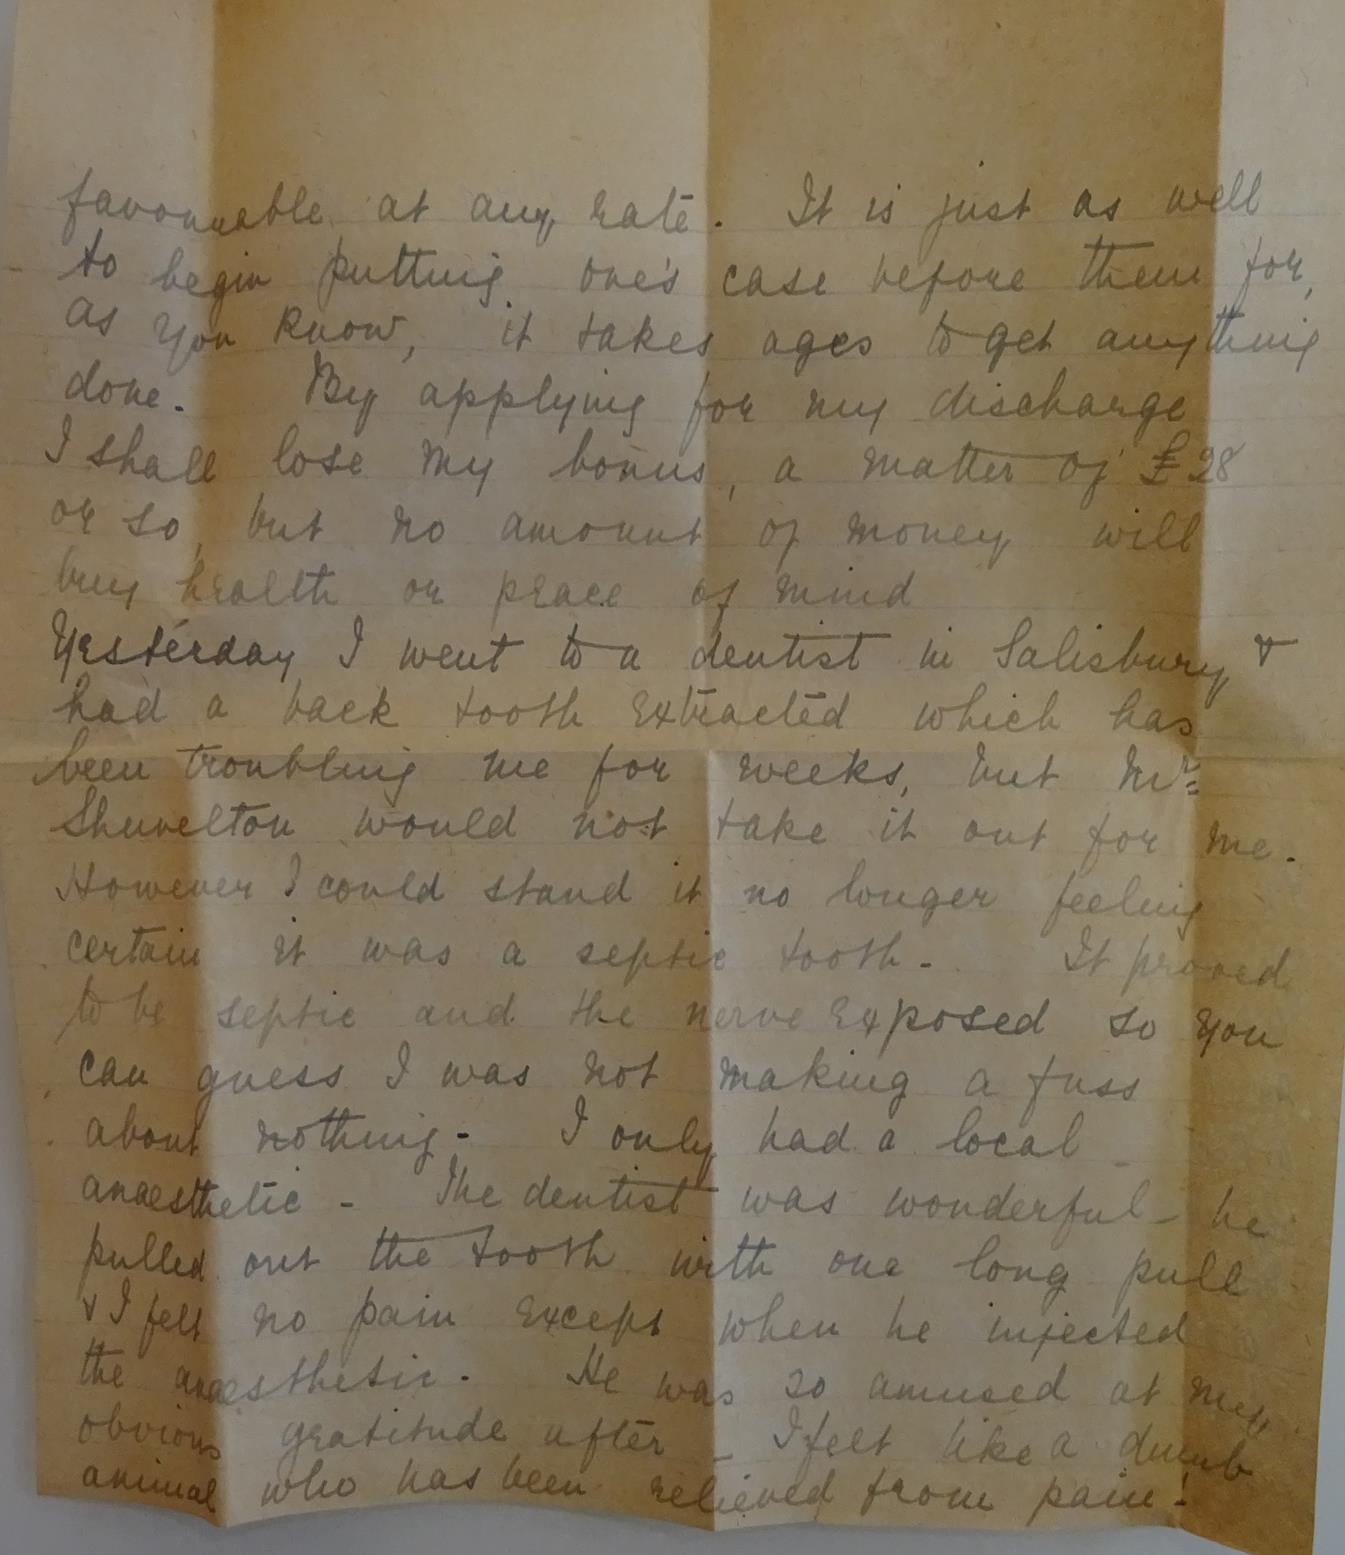 favourable at any rate. It is just as well
to begin putting one's case before them for,
as you know, it takes ages to get anything
done. By applying for my discharge
I shall lose my bonus, a matter of £28
or so, but no amount of money will
buy health or peace of mind
Yesterday I went to a dentist in Salisbury &
had a back tooth extracted which has
been troubling me for weeks, but Mr
Shuvelton would not take it out for me.
However I could stand it no longer feeling
certain it was a septic tooth - It proved
to be septic and the nerve exposed so you
can guess I was not making a fuss
about nothing - I only had a local
anaesthetic - The dentist was wonderful - he
pulled out the tooth with one long pull
& I felt no pain except when he injected
the anaesthetic. He was so amused at my
obvious gratitude after - I felt like a dumb
animal who has been relieved from pain!